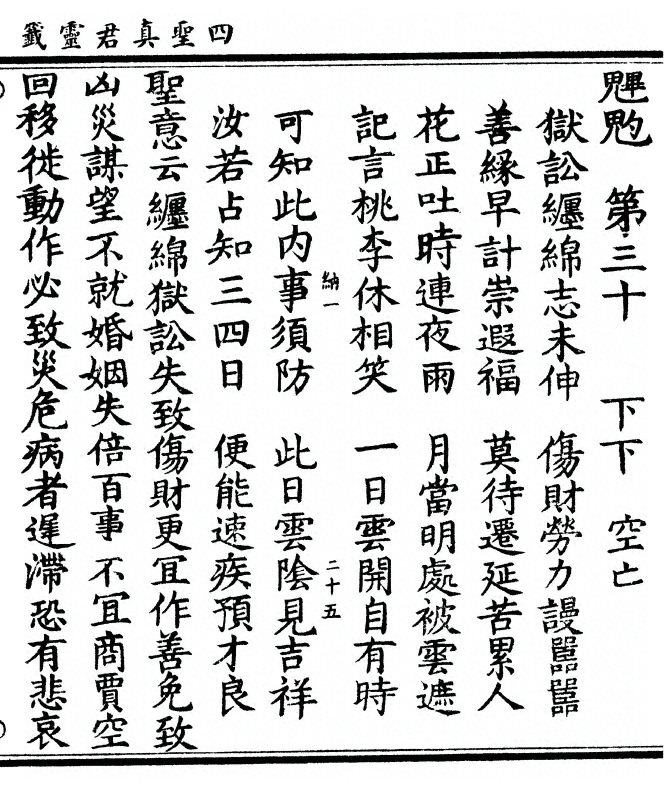 四聖真君靈籤
魓𩲃 第三十 下下 空亡
獄訟纏綿志未伸 傷財勞力謾嚚嚚
善緣早計崇遐福 莫待遷延苦累人
花正吐時連夜雨 月當明處被雲遮
記言桃李休相笑 一日雲開自有時
納一 二十五
可知此内事須防 此日雲陰見吉祥
汝若占知三四日 便能速疾預才良
聖意云纏綿獄訟失致傷財更宜作善免致
凶災謀望不就婚姻失倍百事不宜商賈空
回移徙動作必致災危病者遲滯恐有悲哀